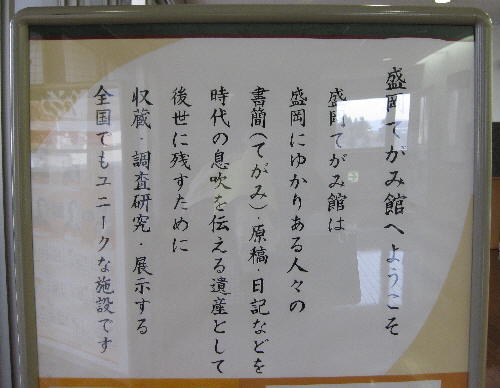 盛岡てがみ館へようこそ
盛岡てがみ館は
盛岡にゆかりある人々の
書簡(てがみ)・原稿・日記などを
時代の息吹を伝える遺産として
後世に残すために
収蔵・調査研究・展示する
全国でもユニークな施設です